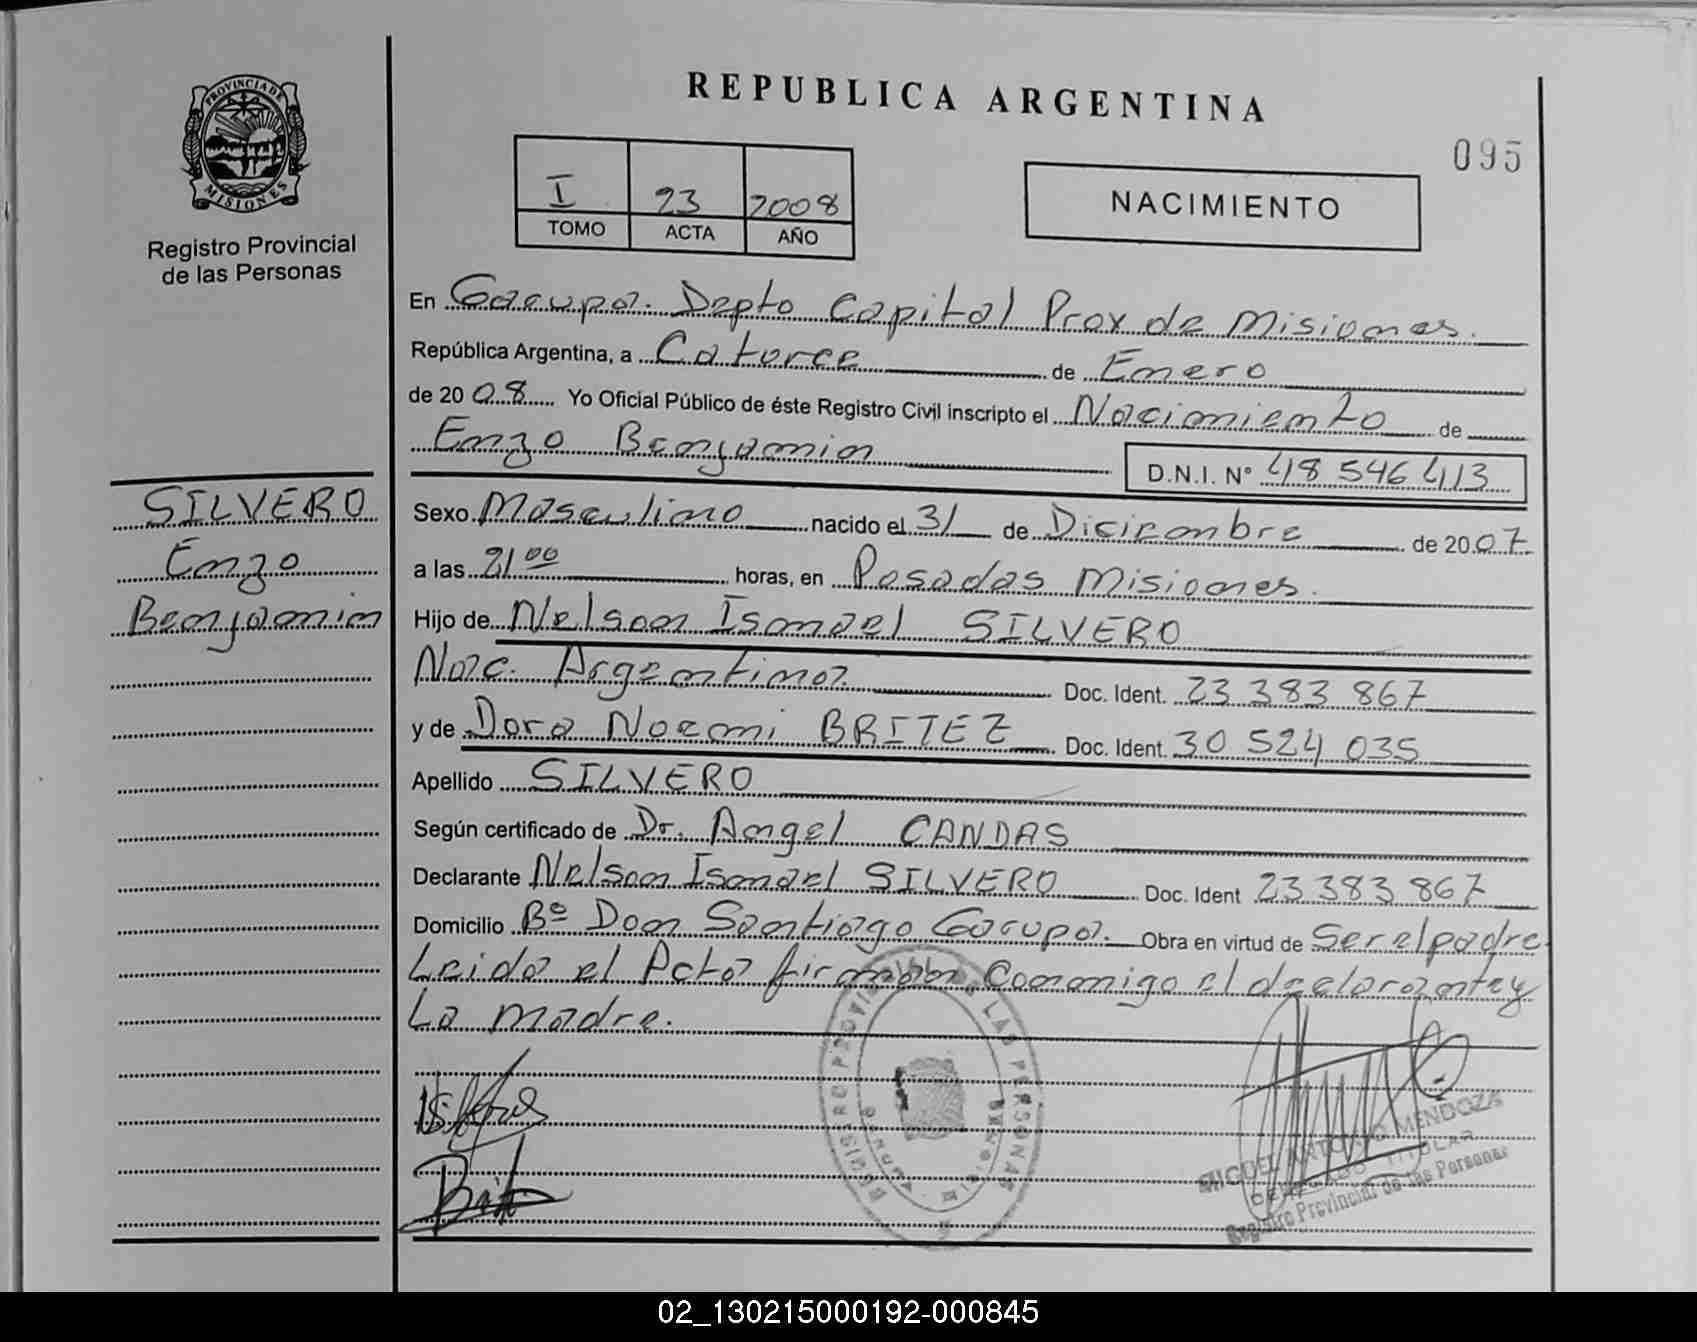 PROVINCIA DE
MISIONES
Registro Provincial
de las Personas
SILVERO
Enzo
Benjamin
REPUBLICA ARGENTINA
095
I 23 2008
TOMO ACTA AÑO
NACIMIENTO
En Garupa. Depto Capital Prov de Misiones.
República Argentina, a Catorce de Enero
de 2008 Yo Oficial Público de éste Registro Civil inscripto el Nacimiento de
Enzo Benjamin D.N.I. Nº 48 546 413
Sexo Masculino nacido el 31 de Diciembre de 2007
a las 21 00 horas, en Posadas Misiones.
Hijo de Nelson Ismael SILVERO
Nac. Argentina. Doc. Ident. 23 383 867
y de Dora Noemi BRITEZ Doc. Ident. 30 524 035
Apellido SILVERO
Según certificado de Dr. Angel CANDAS
Declarante Nelson Ismael SILVERO Doc. Ident 23 383 867
Domicilio Bº Don Santiago Garupa. Obra en virtud de Ser el padre
Leida el Acta firman Conmigo el declarante y
La madre.
REGISTRO PROVINCIAL DE LAS PERSONAS
MIGUEL ANTONIO MENDOZA
TITULAR
Registro Provincial de las Personas
02_130215000192-000845